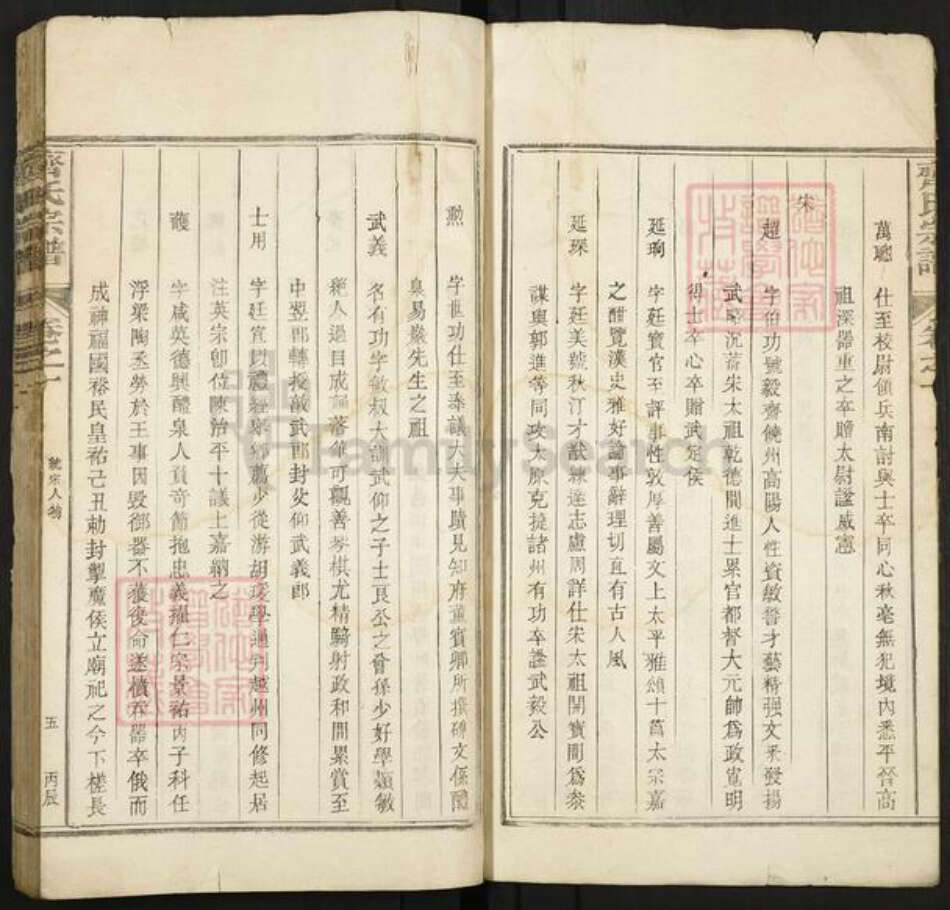 萬聰 仕至校尉領兵南討與士卒同心秋毫無犯境內悉平晉高
祖深器重之卒贈太尉諡威憲
宋
超 字伯功號毅齋饒州高陽人性資敏警才藝精强文釆發揚
武畧沉蓄宋太祖乾德間進士累官都督大元帥爲政寬明
得士卒心卒贈武定侯
延珣 字廷寳官至評事性敦厚善屬文上太平雅頌十篇太宗嘉
之酣覽漢史雅好論事辭理切直有古人風
延琛 字廷美號秋汀才猷練達志慮周詳仕宋太祖開寳間爲叅
謀與郭進等同攻太原克捷諸州有功卒諡武毅公
勲 字世功仕至奉議大夫事蹟見知府董賓卿所撰碑文係醴
泉易巖先生之祖
武義 名有功字敏叔大訓武仰之子士良公之曾孫少好學穎敏
絶人過目成誦落筆可觀善琴棋尤精騎射政和間累賞至
中翌郎轉授敵武郎封父仰武義郎
士用 字廷宜以禮經舉鄉薦少從游胡瑗學通判越州同修起居
注英宗卽位陳治平十議上嘉納之
護 字咸英德興醴泉人負奇節抱忠義擢仁宗景祐丙子科任
浮梁陶丞勞於王事因毁御器不獲復命遂憤吞器卒俄而
成神福國裕民皇祐己丑勅封掣魔侯立廟祀之今下槎長
齊氏宗譜
卷之一
統宗人物
五
丙辰
齊氏宗譜
卷之一
FamilySearch